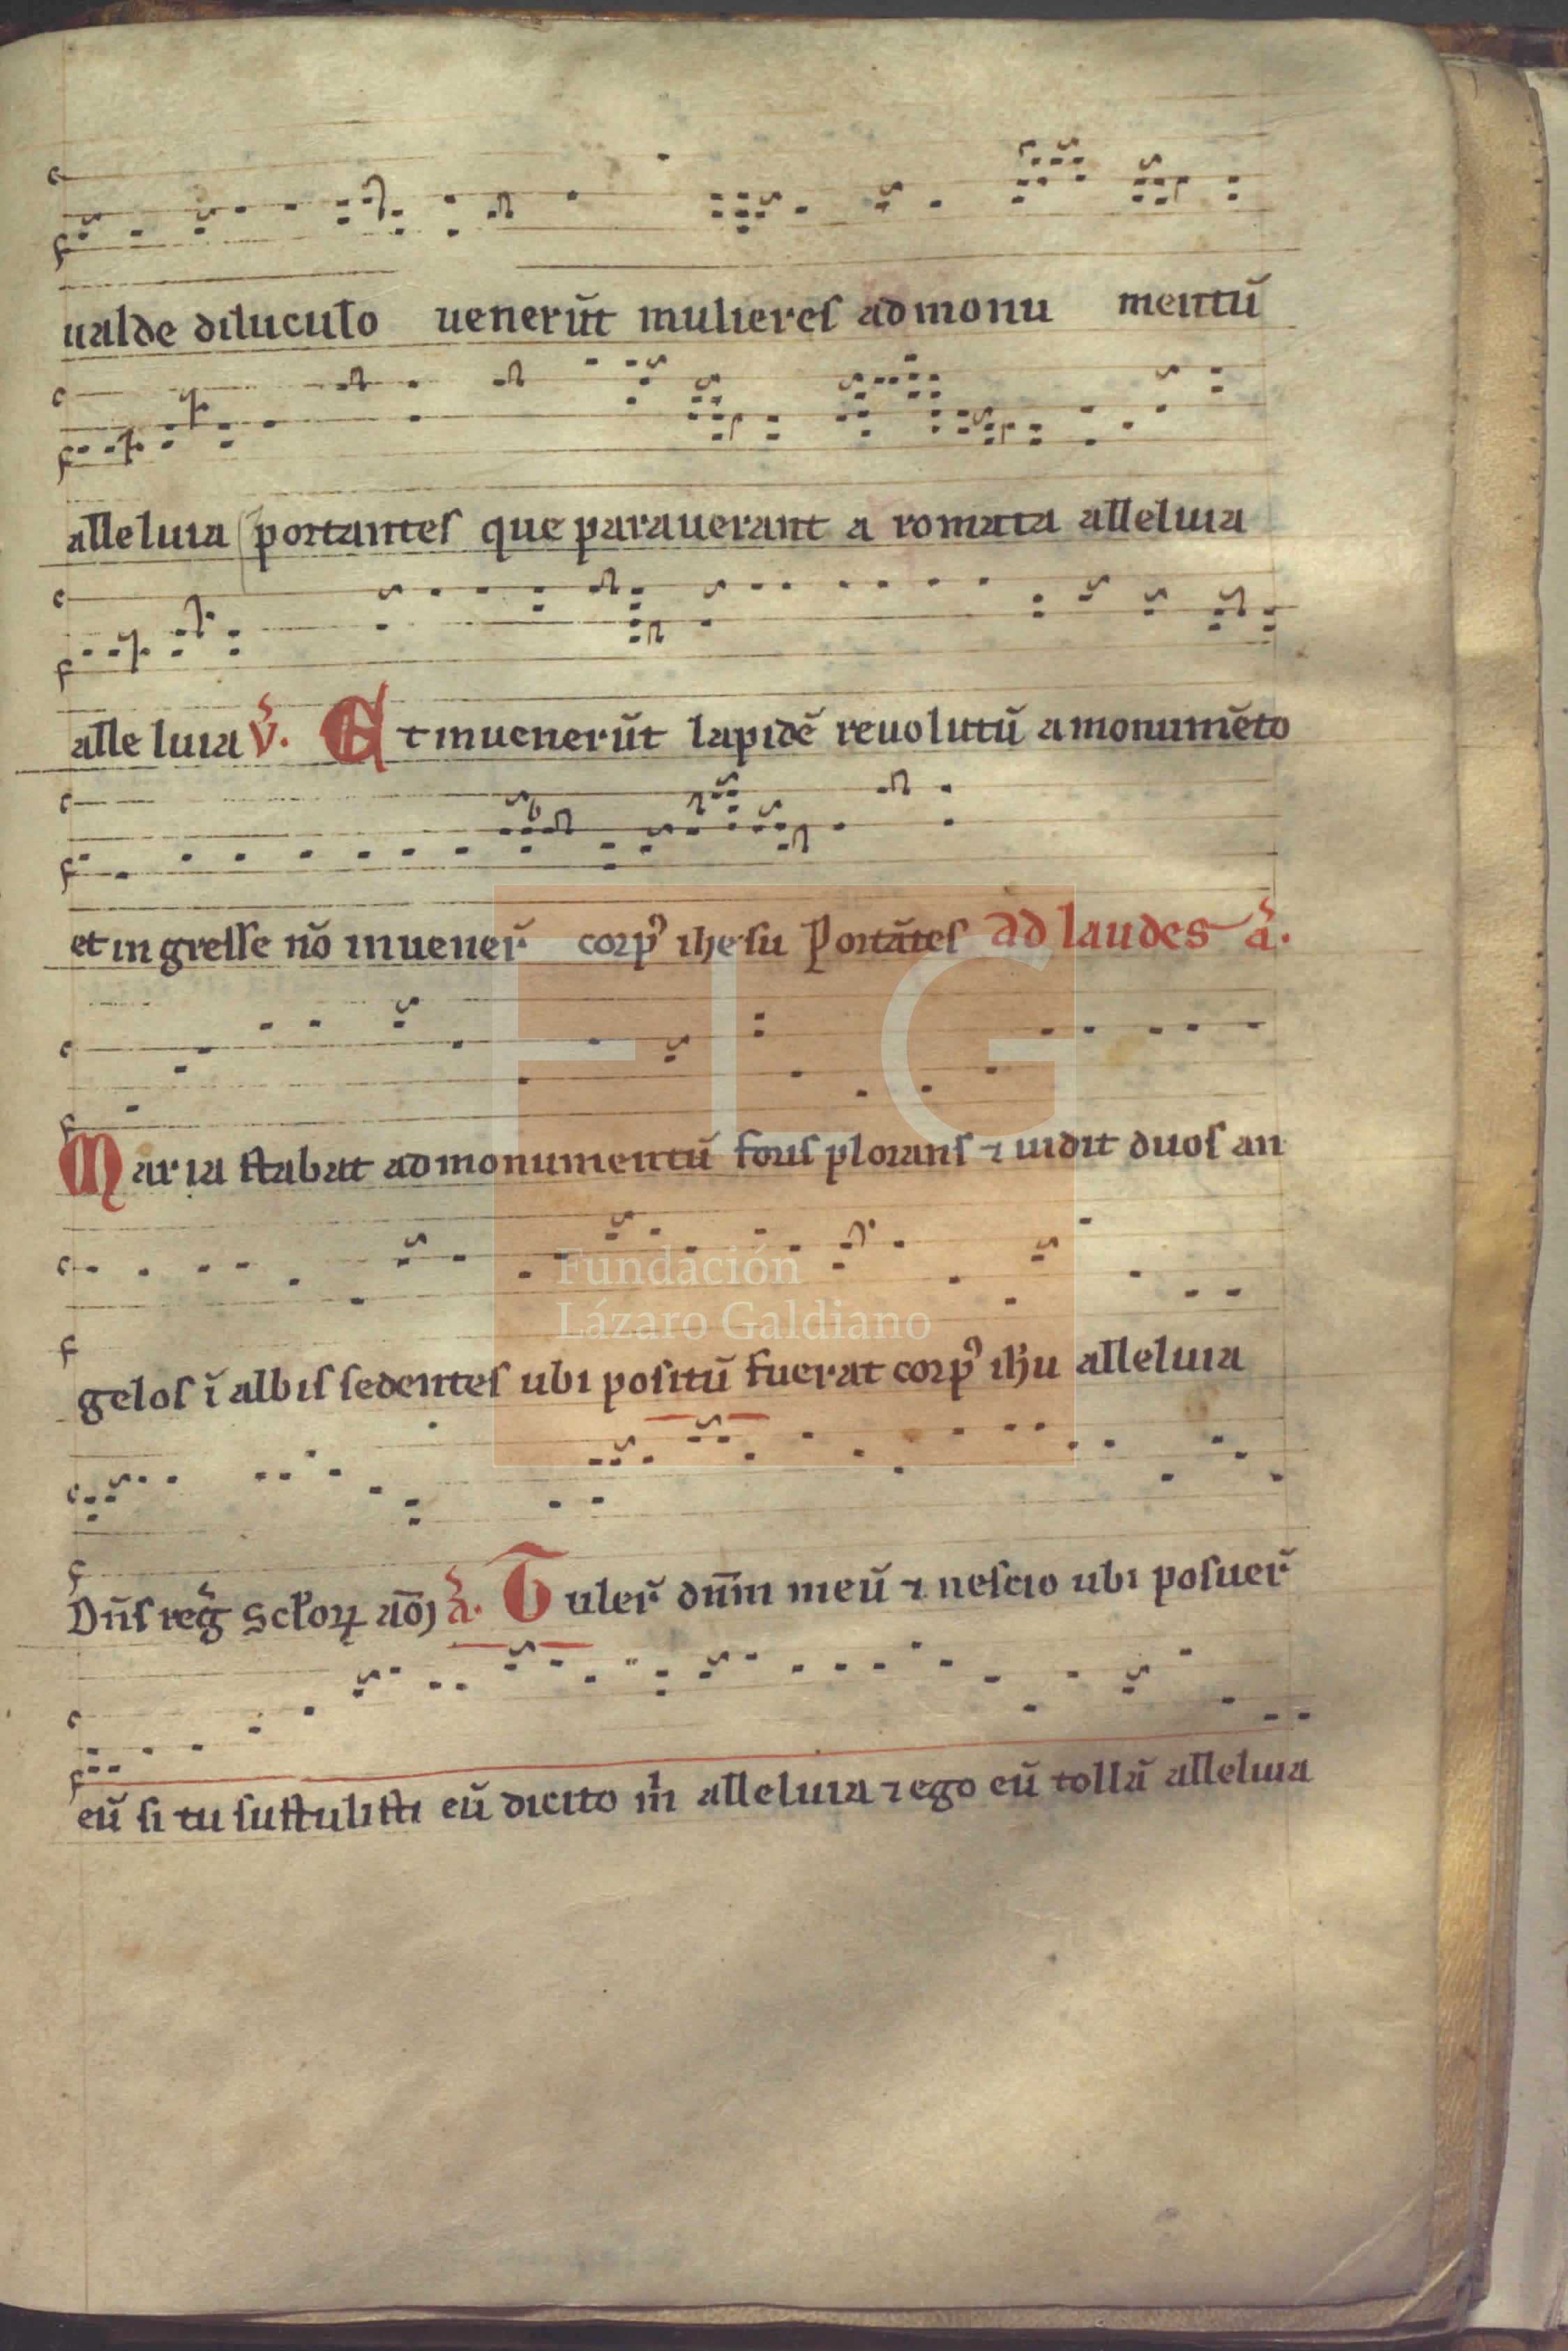 ualde diluculo uenerūt mulieres ad monu mentū
alle luia portantes que parauerant a romata alleluia
alle luia V̄. Et inuenerūt lapidē reuolutū a monumēto
et in gresse nō inuener̄ corpꝰ ihesu Portātes ad laudes ā.
Maria stabat ad monumentū foris plorans ⁊ uidit duos an
gelos ī albis sedentes ubi positū fuerat corpꝰ ihu alleluia
Fundación
Lázaro Galdiano
Dn̄s reḡ ā. Tuler̄ dn̄m meū ⁊ nescio ubi posuer̄
eū si tu sustulisti eū dicito m̄ alleluia ⁊ ego eū tollā alleluia